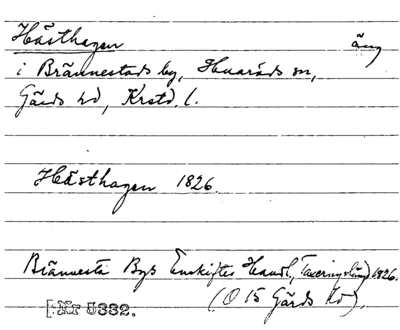 Hästhagen äng
i Brännestads by, Huaröds sn,
Gärds hd, Krstd. l.
Hästhagen 1826.
Brännesta Bys Enskiftes Handl., Taxeringslängd 1826.
(O 15 Gärds hd).
[Nr 5332.